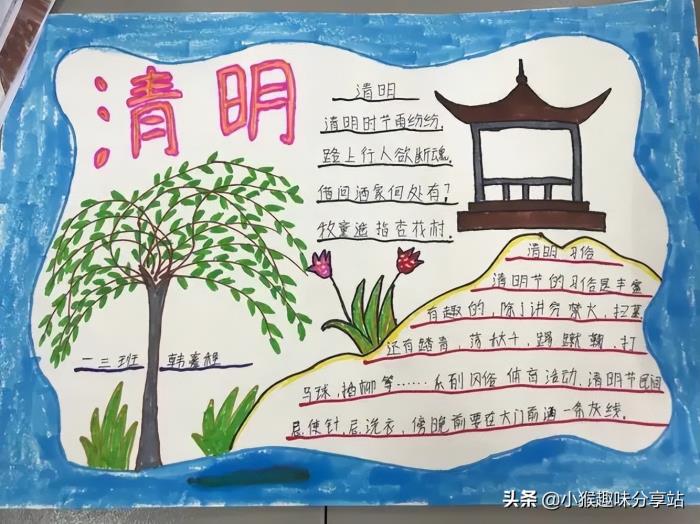 清明
清明
清明时节雨纷纷,
路上行人欲断魂.
借问酒家何处有?
牧童遥指杏花村.
清明习俗
清明节的习俗是丰富
有趣的,除了讲究禁火、扫墓
还有踏青、荡秋千、蹋蹴鞠、打
马球、插柳等……系列风俗体育活动.清明节民间
忌使针,忌洗衣,傍晚前要在大门前洒一条灰线.
一三班 韩
头条 @小猴趣味分享站